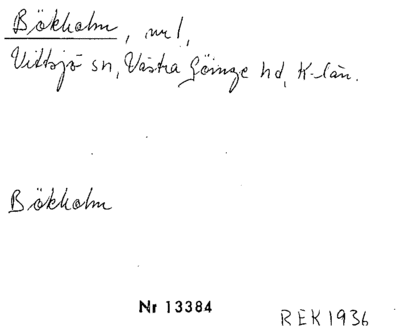 Bökholm, nr 1,
Vittsjö sn, Västra Göinge hd, K-län.
Bökholm
Nr 13384
REK 1936